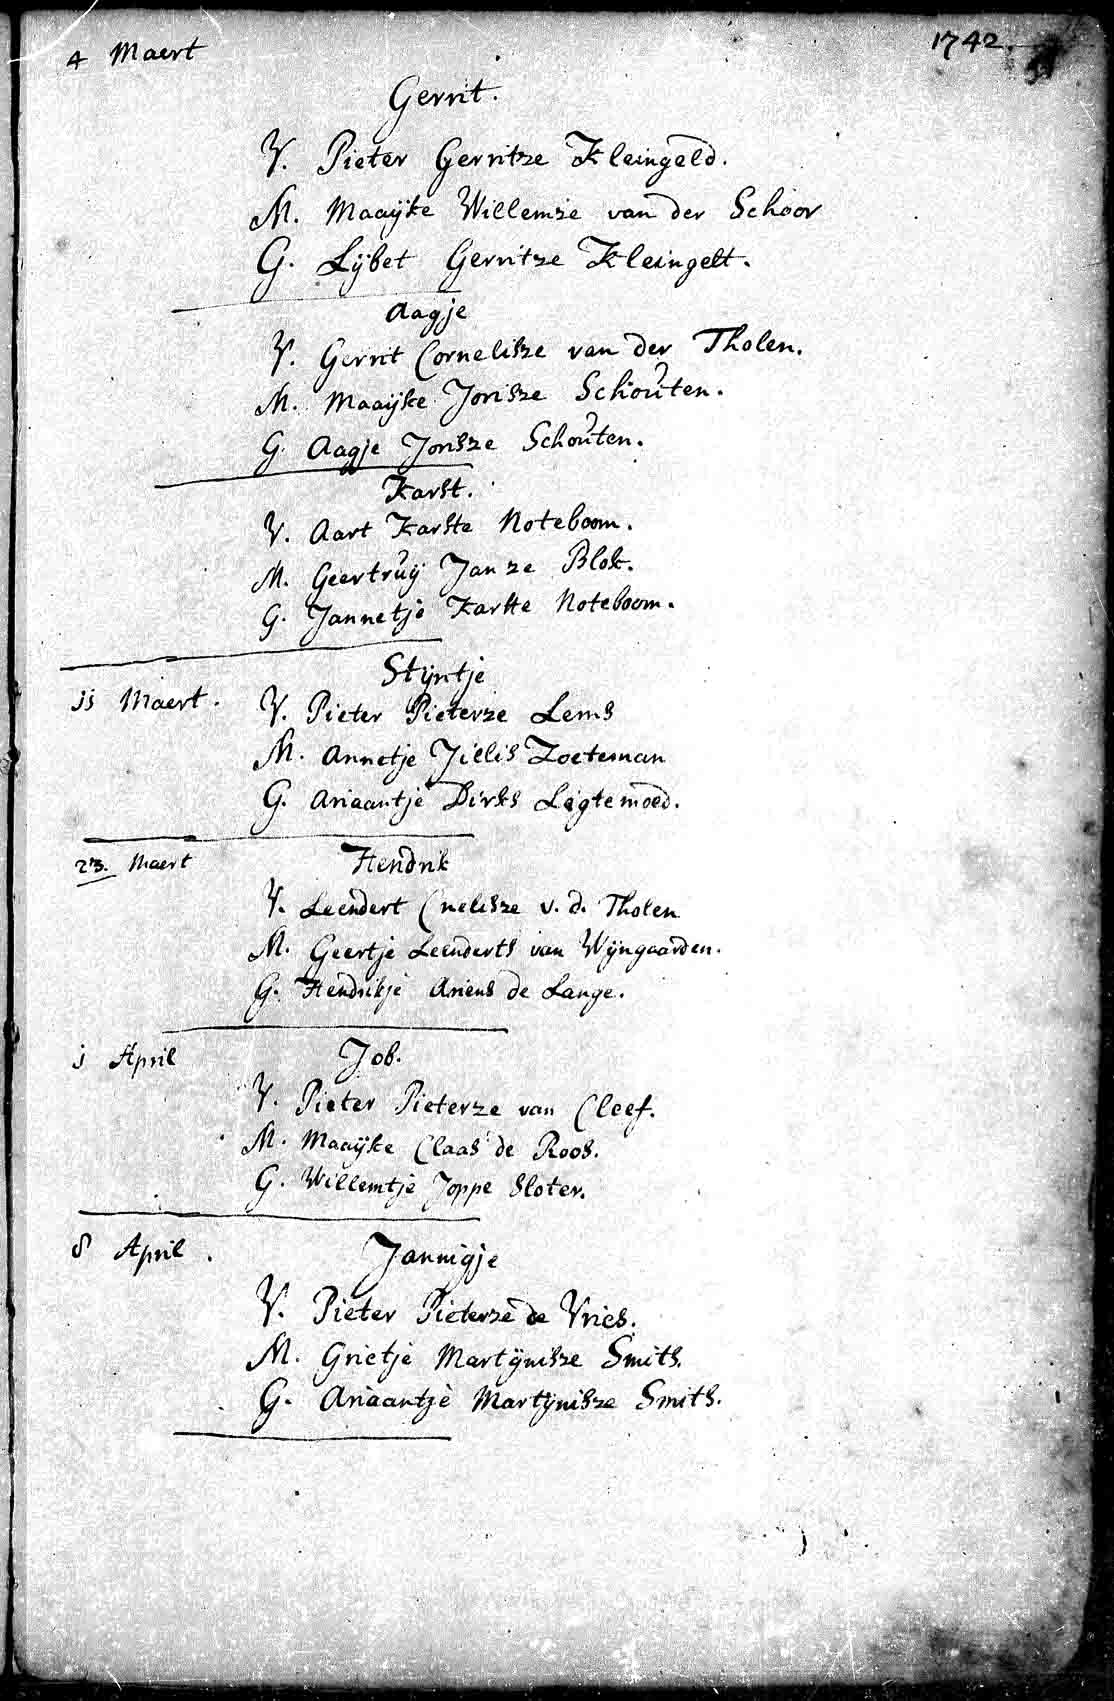 4 Maert 1742.
Gerrit.
V. Pieter Gerritze Kleingeld.
M. Maaijke Willemze van der Schoor
G. Lijbet Gerritze Kleingelt.
Aagje
V. Gerrit Cornelisze van der Tholen.
M. Maaijke Jorisze Schouten.
G. Aagje Jorisze Schouten.
Karst.
V. Aart Karste Noteboom.
M. Geertruij Janze Blok.
G. Jannetje Karste Noteboom.
Stijntje
11 Maert. V. Pieter Pieterze Lems
M. Annetje Jielis Zoeteman
G. Ariaantje Dirks Ligtemoed.
23. Maert Hendrik
V. Leendert Cnelisze v. d. Tholen
M. Geertje Leenderts van Wijngaarden.
G. Hendrikje Ariens de Lange.
1 April Job.
V. Pieter Pieterze van Cleef.
M. Maaijke Claas de Roos.
G. Willemtje Joppe Sloter.
8 April. Jannigje
V. Pieter Pieterze de Vries.
M. Grietje Martijnisze Smits.
G. Ariaantje Martijnisze Smits.